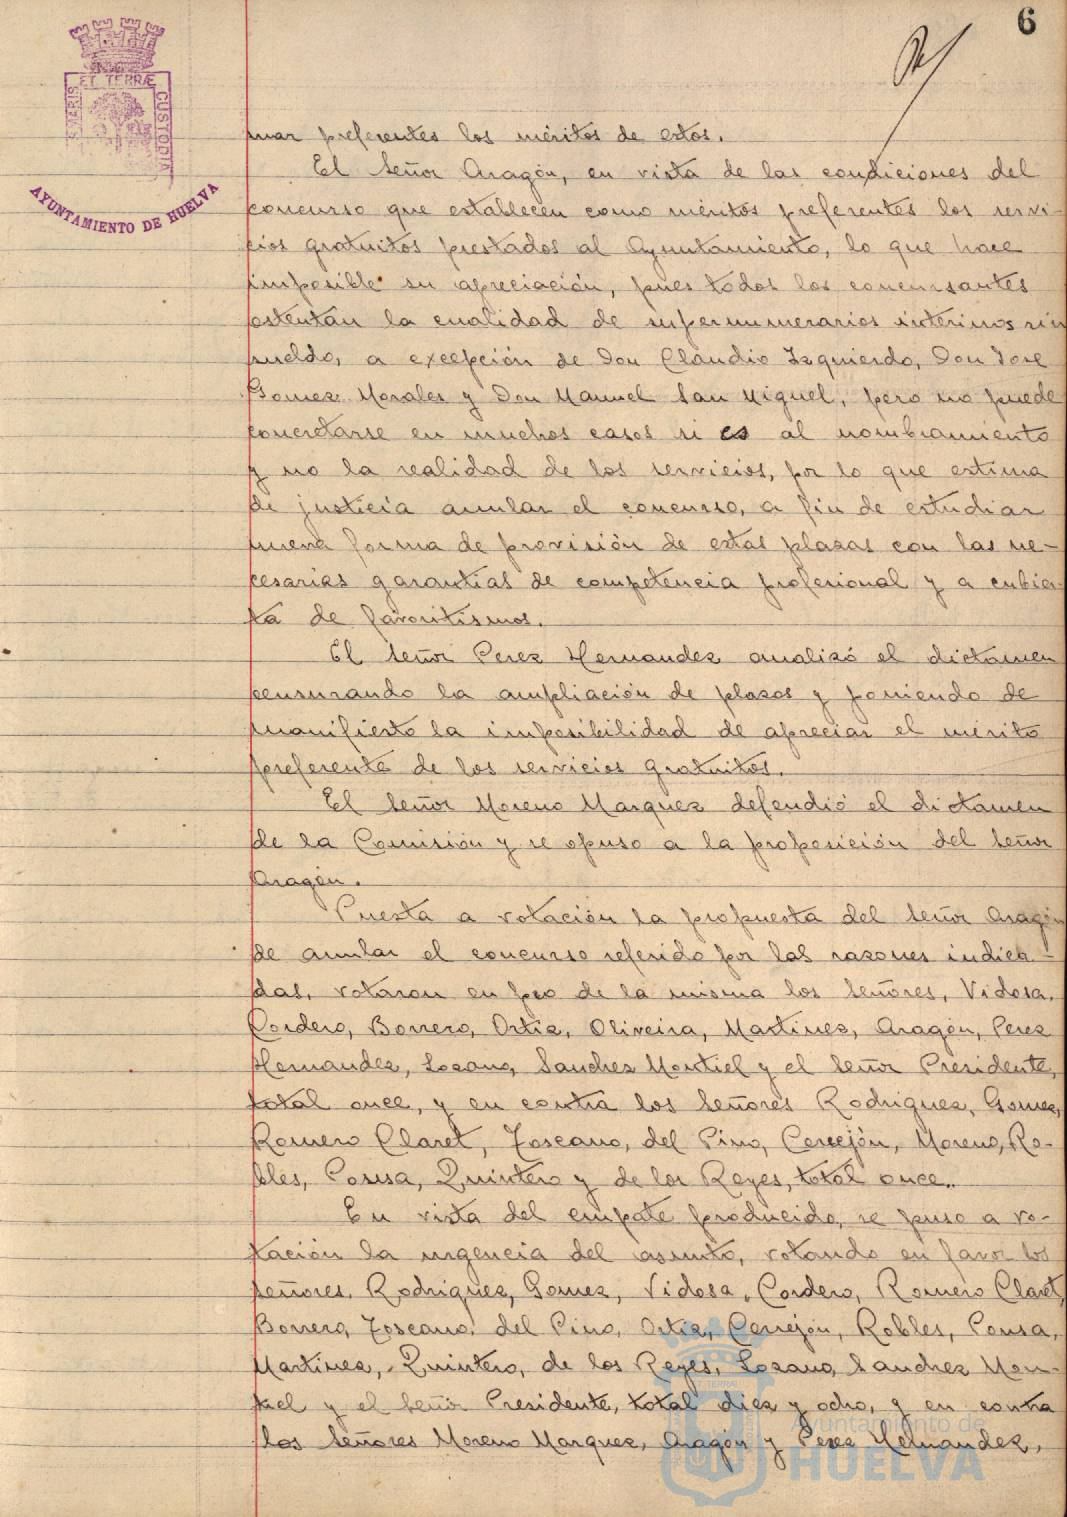 6
ET TERRÆ
MARIS
CUSTODIA
AYUNTAMIENTO DE HUELVA
mar preferentes los méritos de estos.
El Señor Aragón, en vista de las condiciones del
concurso que establecen como méritos preferentes los servi-
cios gratuitos prestados al Ayuntamiento, lo que hace
imposible su apreciación, pues todos los concursantes
ostentan la cualidad de supernumerarios interinos sin
sueldo, a excepción de Don Claudio Izquierdo, Don Jose
Gomez Morales y Don Manuel San Miguel, pero no puede
concretarse en muchos casos si es al nombramiento
y no la realidad de los servicios, por lo que estima
de justicia anular el concurso, a fin de estudiar
nueva forma de provisión de estas plazas con las ne-
cesarias garantías de competencia profesional y a cubier-
ta de favoritismos.
El Señor Perez Hernandez analizó el dictamen
censurando la ampliación de plazas y poniendo de
manifiesto la imposibilidad de apreciar el mérito
preferente de los servicios gratuitos.
El Señor Moreno Marquez defendió el dictamen
de la Comisión y se opuso a la proposición del Señor
Aragón.
Puesta a votación la propuesta del Señor Aragón
de anular el concurso referido por las razones indica-
das, votaron en pro de la misma los Señores, Vidosa,
Cordero, Borrero, Ortiz, Oliveira, Martinez, Aragón, Perez
Hernandez, Lozano, Sanchez Montiel y el Señor Presidente,
total once, y en contra los Señores Rodriguez, Gomez,
Romero Claret, Toscano, del Pino, Cerrejón, Moreno, Ro-
bles, Ponsa, Quintero y de los Reyes, total once..
En vista del empate producido, se puso a vo-
tación la urgencia del asunto, votando en favor los
Señores, Rodriguez, Gomez, Vidosa, Cordero, Romero Claret,
Borrero, Toscano, del Pino, Ortiz, Cerrejón, Robles, Ponsa,
Martinez, Quintero, de los Reyes, Lozano, Sanchez Mon-
tiel y el Señor Presidente, total diez y ocho, y en contra
los Señores Moreno Marquez, Aragón y Perez Hernandez,
Ayuntamiento de
HUELVA